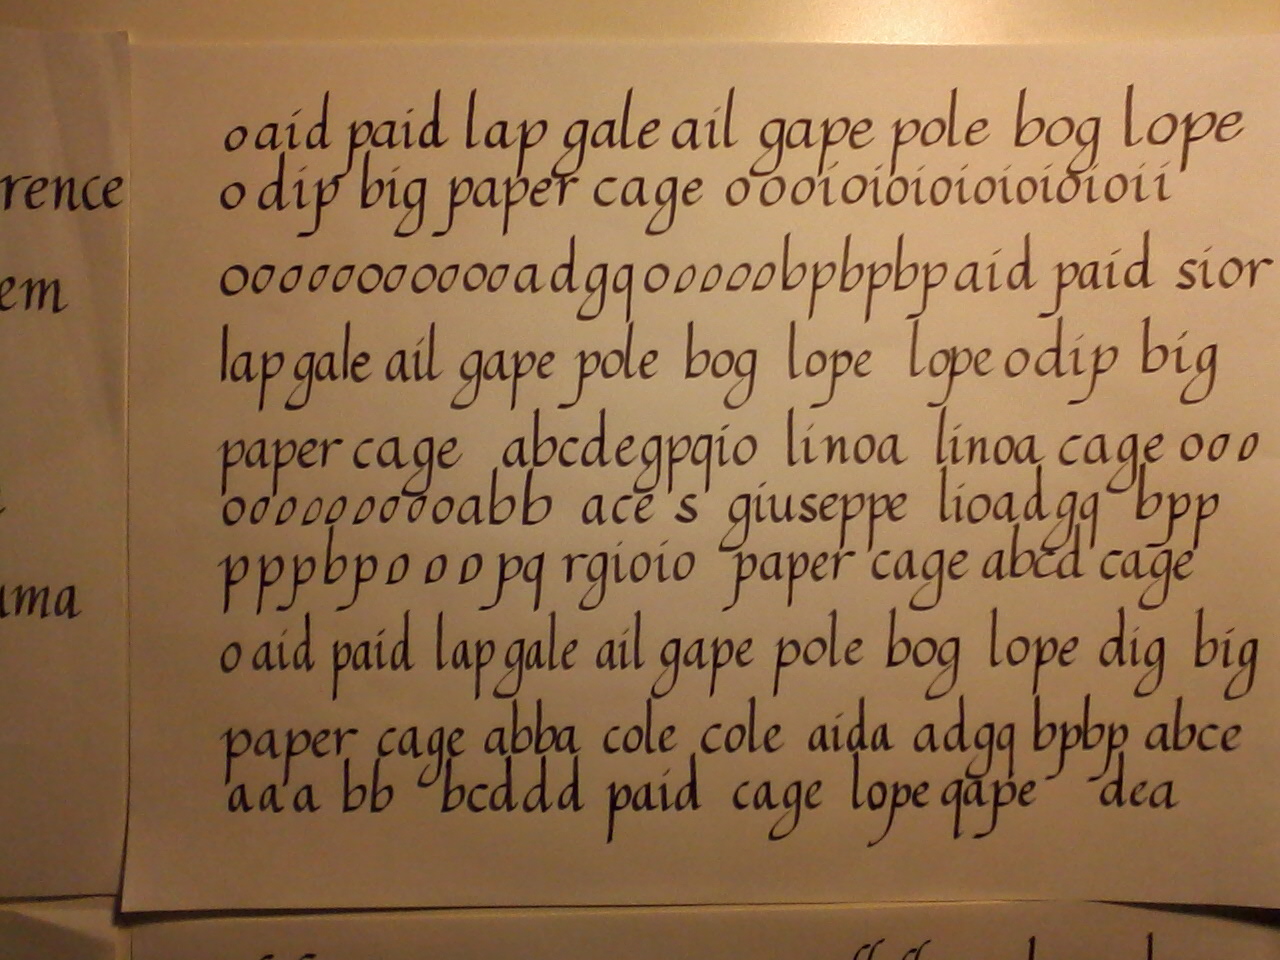 rence
em
ma
o aid paid lap gale ail gape pole bog lope
o dip big paper cage o o o i o i o i o i o i o i o i o i i
o o o o o o o o o o o a d g q o o o o o b p b p b p aid paid sior
lap gale ail gape pole bog lope lope o dip big
paper cage abcdegpqio linoa linoa cage o o o
o o o o o o o o o abb ace s giuseppe lioadgq bpp
p p p b p o o o pq rgioio paper cage abcd cage
o aid paid lap gale ail gape pole bog lope dig big
paper cage abba cole cole aida adgq bpbp abce
aaa bb bcddd paid cage lope qape dea